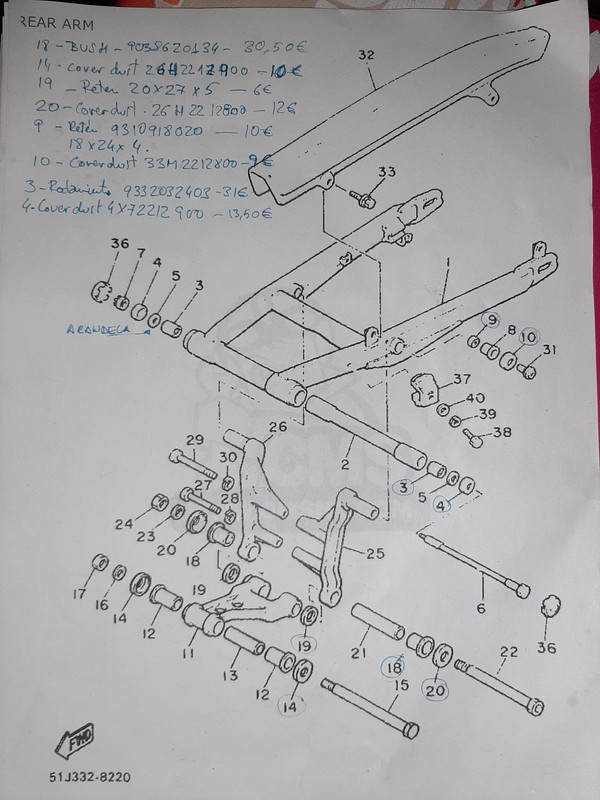 REAR ARM
18 - BUSH - 9038620134 - 30,50€
14 - Cover dust 26H2212900 - 10€
19 - Reten 20x27x5 - 6€
20 - Cover dust. 26H2212800 - 12€
9 - Reten 9310918020 - 10€
18x24x4.
10 - Cover dust 33M2212800 - 9€
3 - Rodamiento 9332032403 - 31€
4 - Cover dust 4X72212900 - 13,50€
32
33
36
7
4
5
3
1
ARANDELA
9
8
10
31
37
40
39
38
26
29
2
30
27
28
3
5
4
24
23
20
18
25
6
17
16
14
12
19
11
13
12
14
19
21
18
20
22
36
15
CMS
FWD
51J332-8220